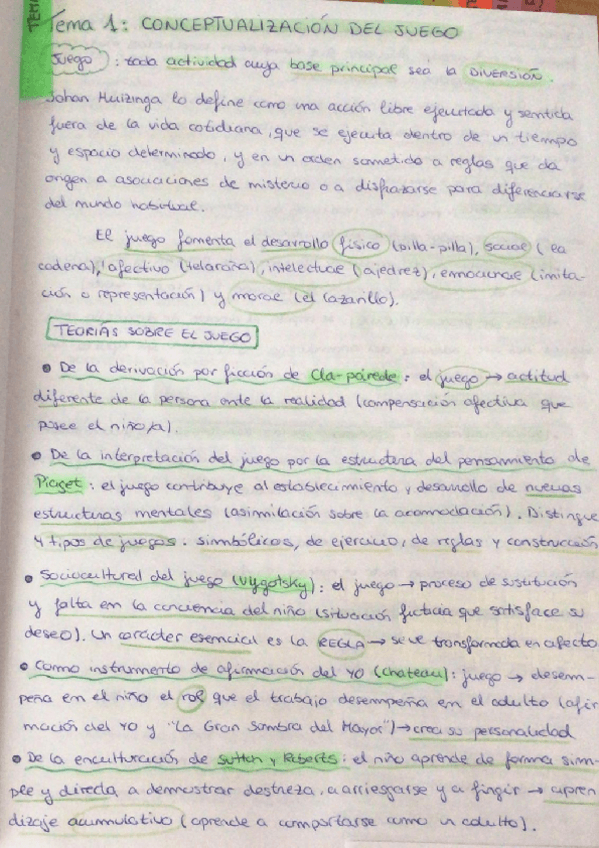 TEMA
Tema 1: CONCEPTUALIZACIÓN DEL JUEGO
Juego : toda actividad cuya base principal sea la DIVERSIÓN.
Johan Huizinga lo define como una acción libre ejecutada y sentida
fuera de la vida cotidiana, que se ejecuta dentro de un tiempo
y espacio determinado, y en un orden sometido a reglas que da
origen a asociaciones de misterio o a disfrazarse para diferenciarse
del mundo habitual.
El juego fomenta el desarrollo físico (pilla-pilla), social (la
cadena), afectivo (telaraña), intelectual (ajedrez), emocional (imita-
ción o representación) y moral (el lazarillo).
TEORÍAS SOBRE EL JUEGO
• De la derivación por ficción de Cla-parede: el juego → actitud
diferente de la persona ante la realidad (compensación afectiva que
posee el niño/a).
• De la interpretación del juego por la estructura del pensamiento de
Piaget: el juego contribuye al establecimiento y desarrollo de nuevas
estructuras mentales (asimilación sobre la acomodación). Distingue
4 tipos de juegos: simbólicos, de ejercicio, de reglas y construcción
• Sociocultural del juego (Vygotsky): el juego → proceso de sustitución
y falta en la conciencia del niño (situación ficticia que satisface su
deseo). Un carácter esencial es la REGLA → se ve transformada en afecto
• Como instrumento de afirmación del YO (Chateau): juego → desem-
peña en el niño el rol que el trabajo desempeña en el adulto (afir
mación del YO y "La Gran Sombra del Mayor") → crea su personalidad
• De la enculturación de Sutton y Roberts: el niño aprende de forma sim-
ple y directa a demostrar destreza, a arriesgarse y a fingir → apren
dizaje acumulativo (aprende a comportarse como un adulto).